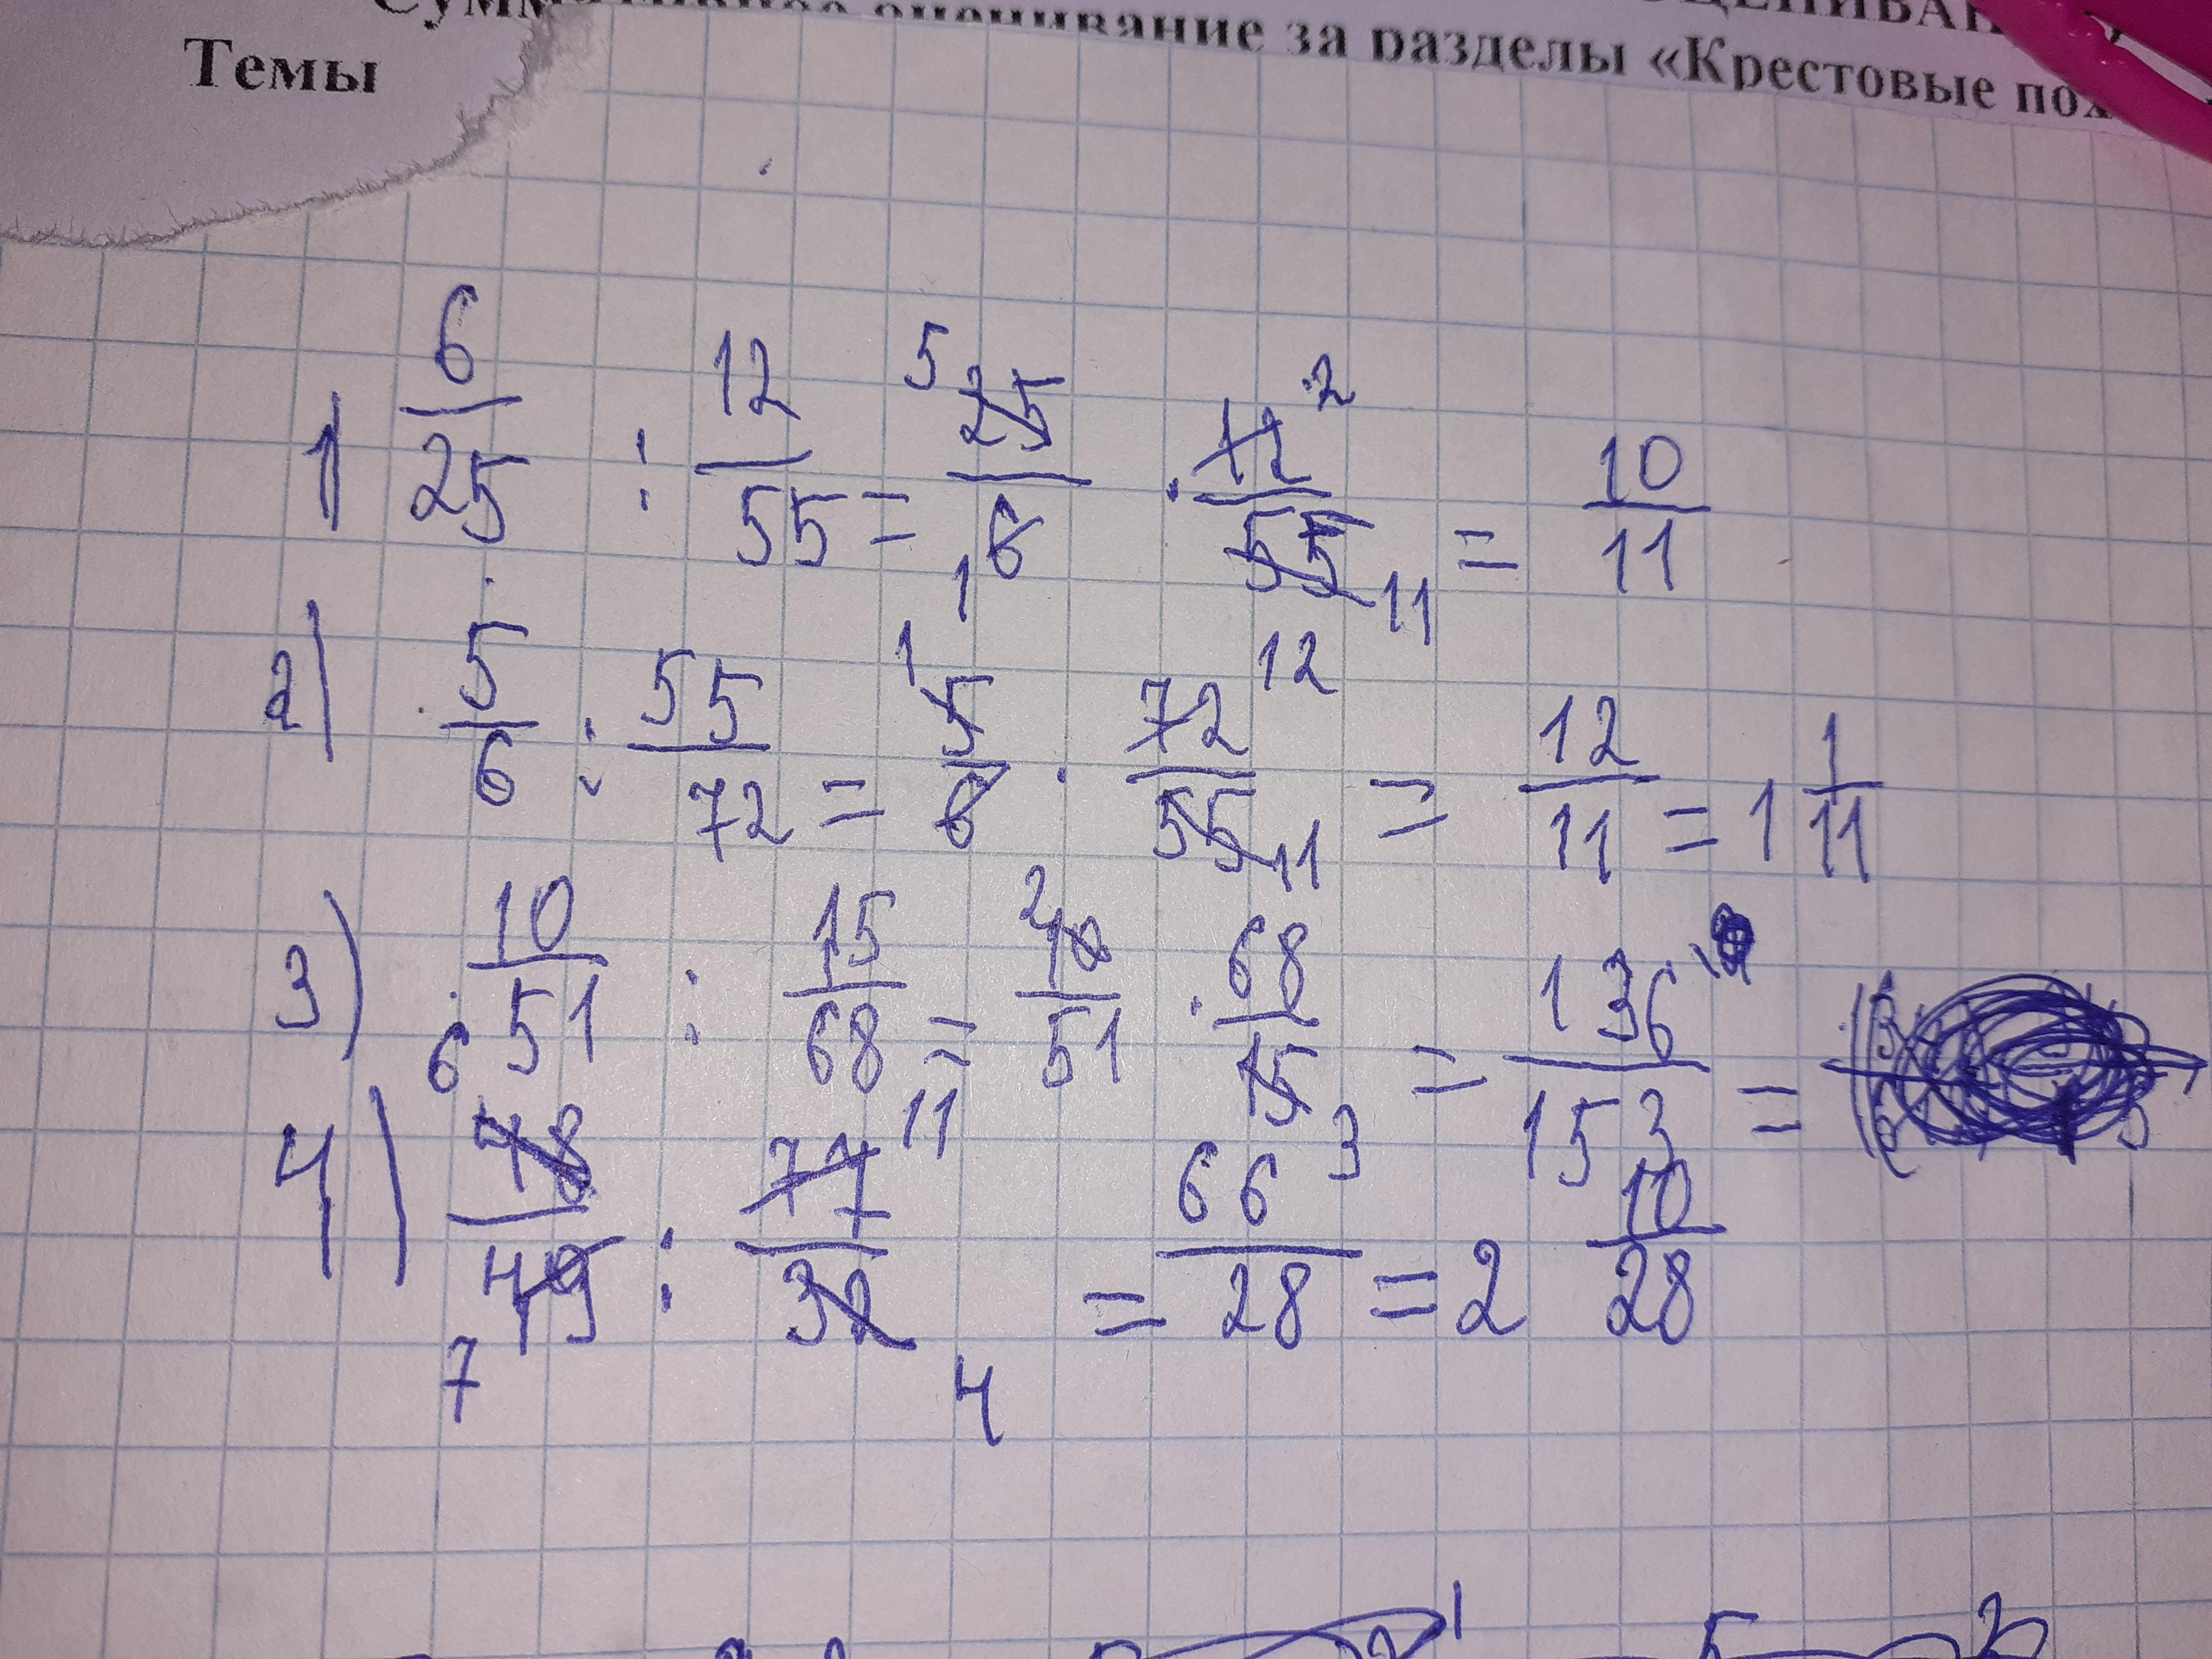 оценивание за разделы «Крестовые пох
Темы
1 6/25 : 12/55 = 25/6 · 12/55 = 10/11
5 1 2 11
2) 5/6 : 55/72 = 5/6 · 72/55 = 12/11 = 1 1/11
1 12 11
3) 10/51 : 15/68 = 10/51 · 68/15 = 136/153 =
2 3
4) 48/49 : 77/32 = 66/28 = 2 10/28
6 11 7 4
1 5 2